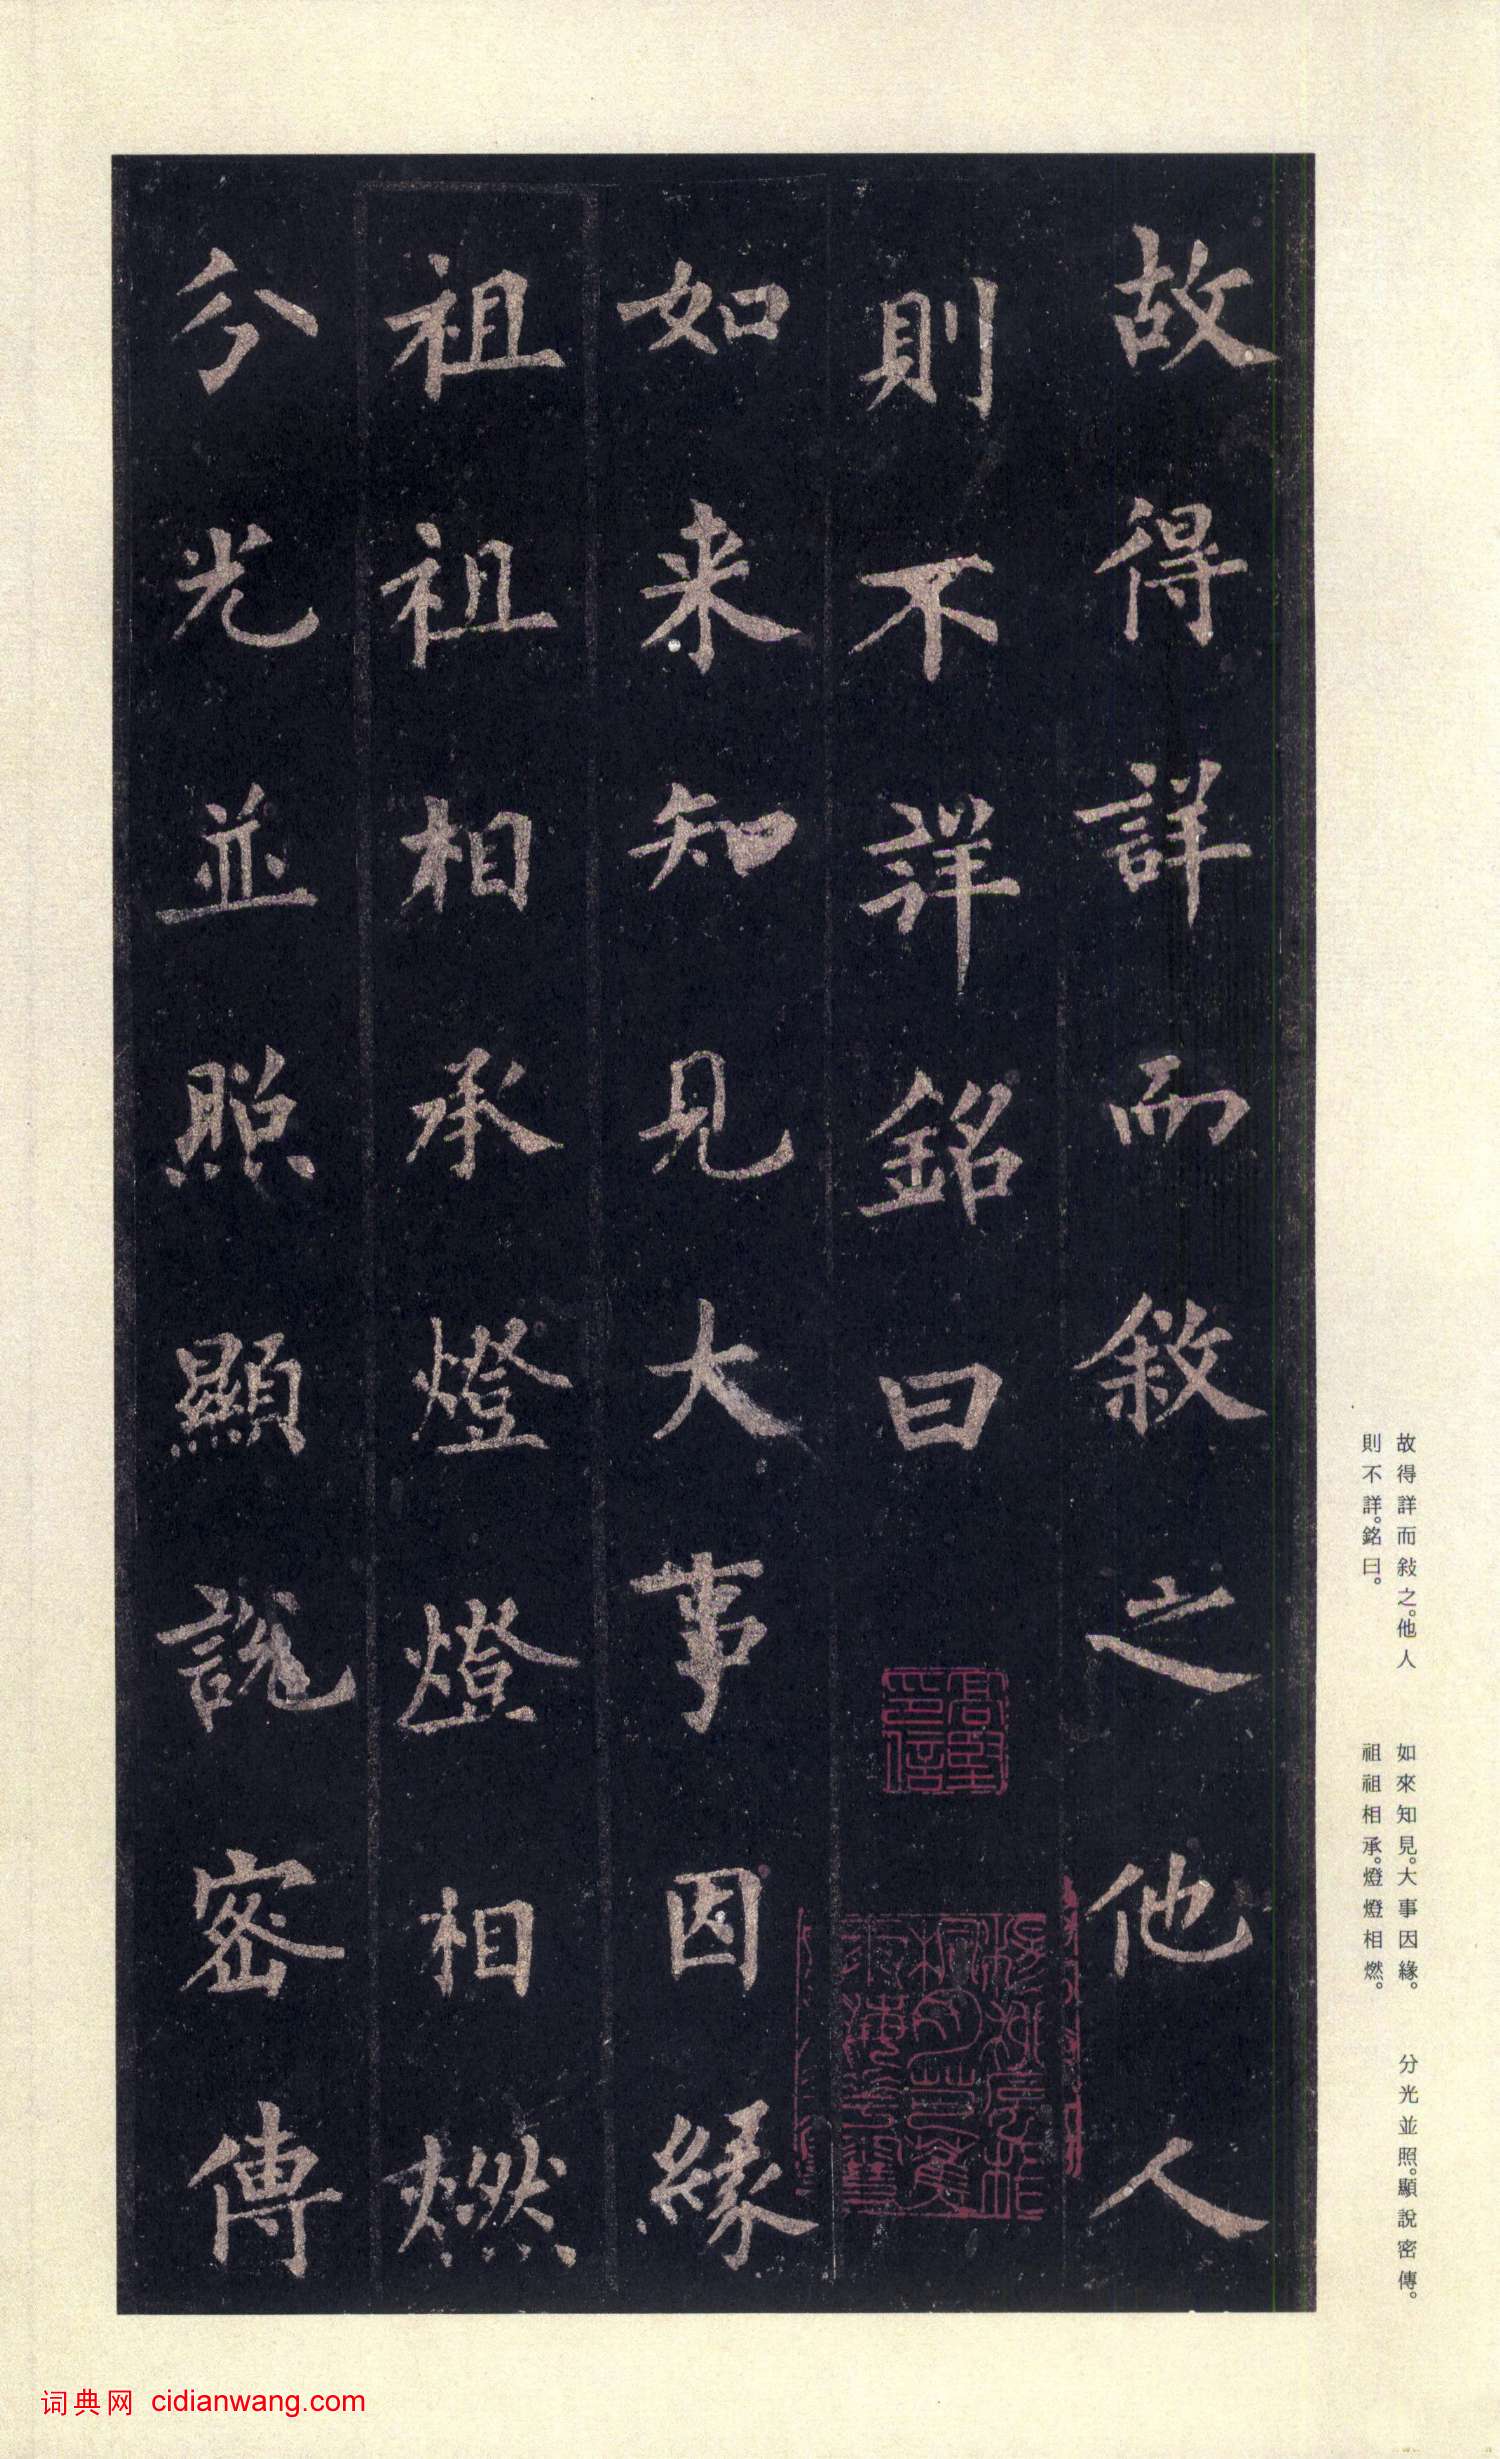 故得詳而敘之他人
則不詳銘曰
如来知見大事因緣
祖祖相承燈燈相燃
分光並照顯說密傳
故得詳而敍之。他人
則不詳。銘曰。
如來知見。大事因緣。
祖祖相承。燈燈相燃。
分光並照。顯說密傳。
词典网 cidianwang.com